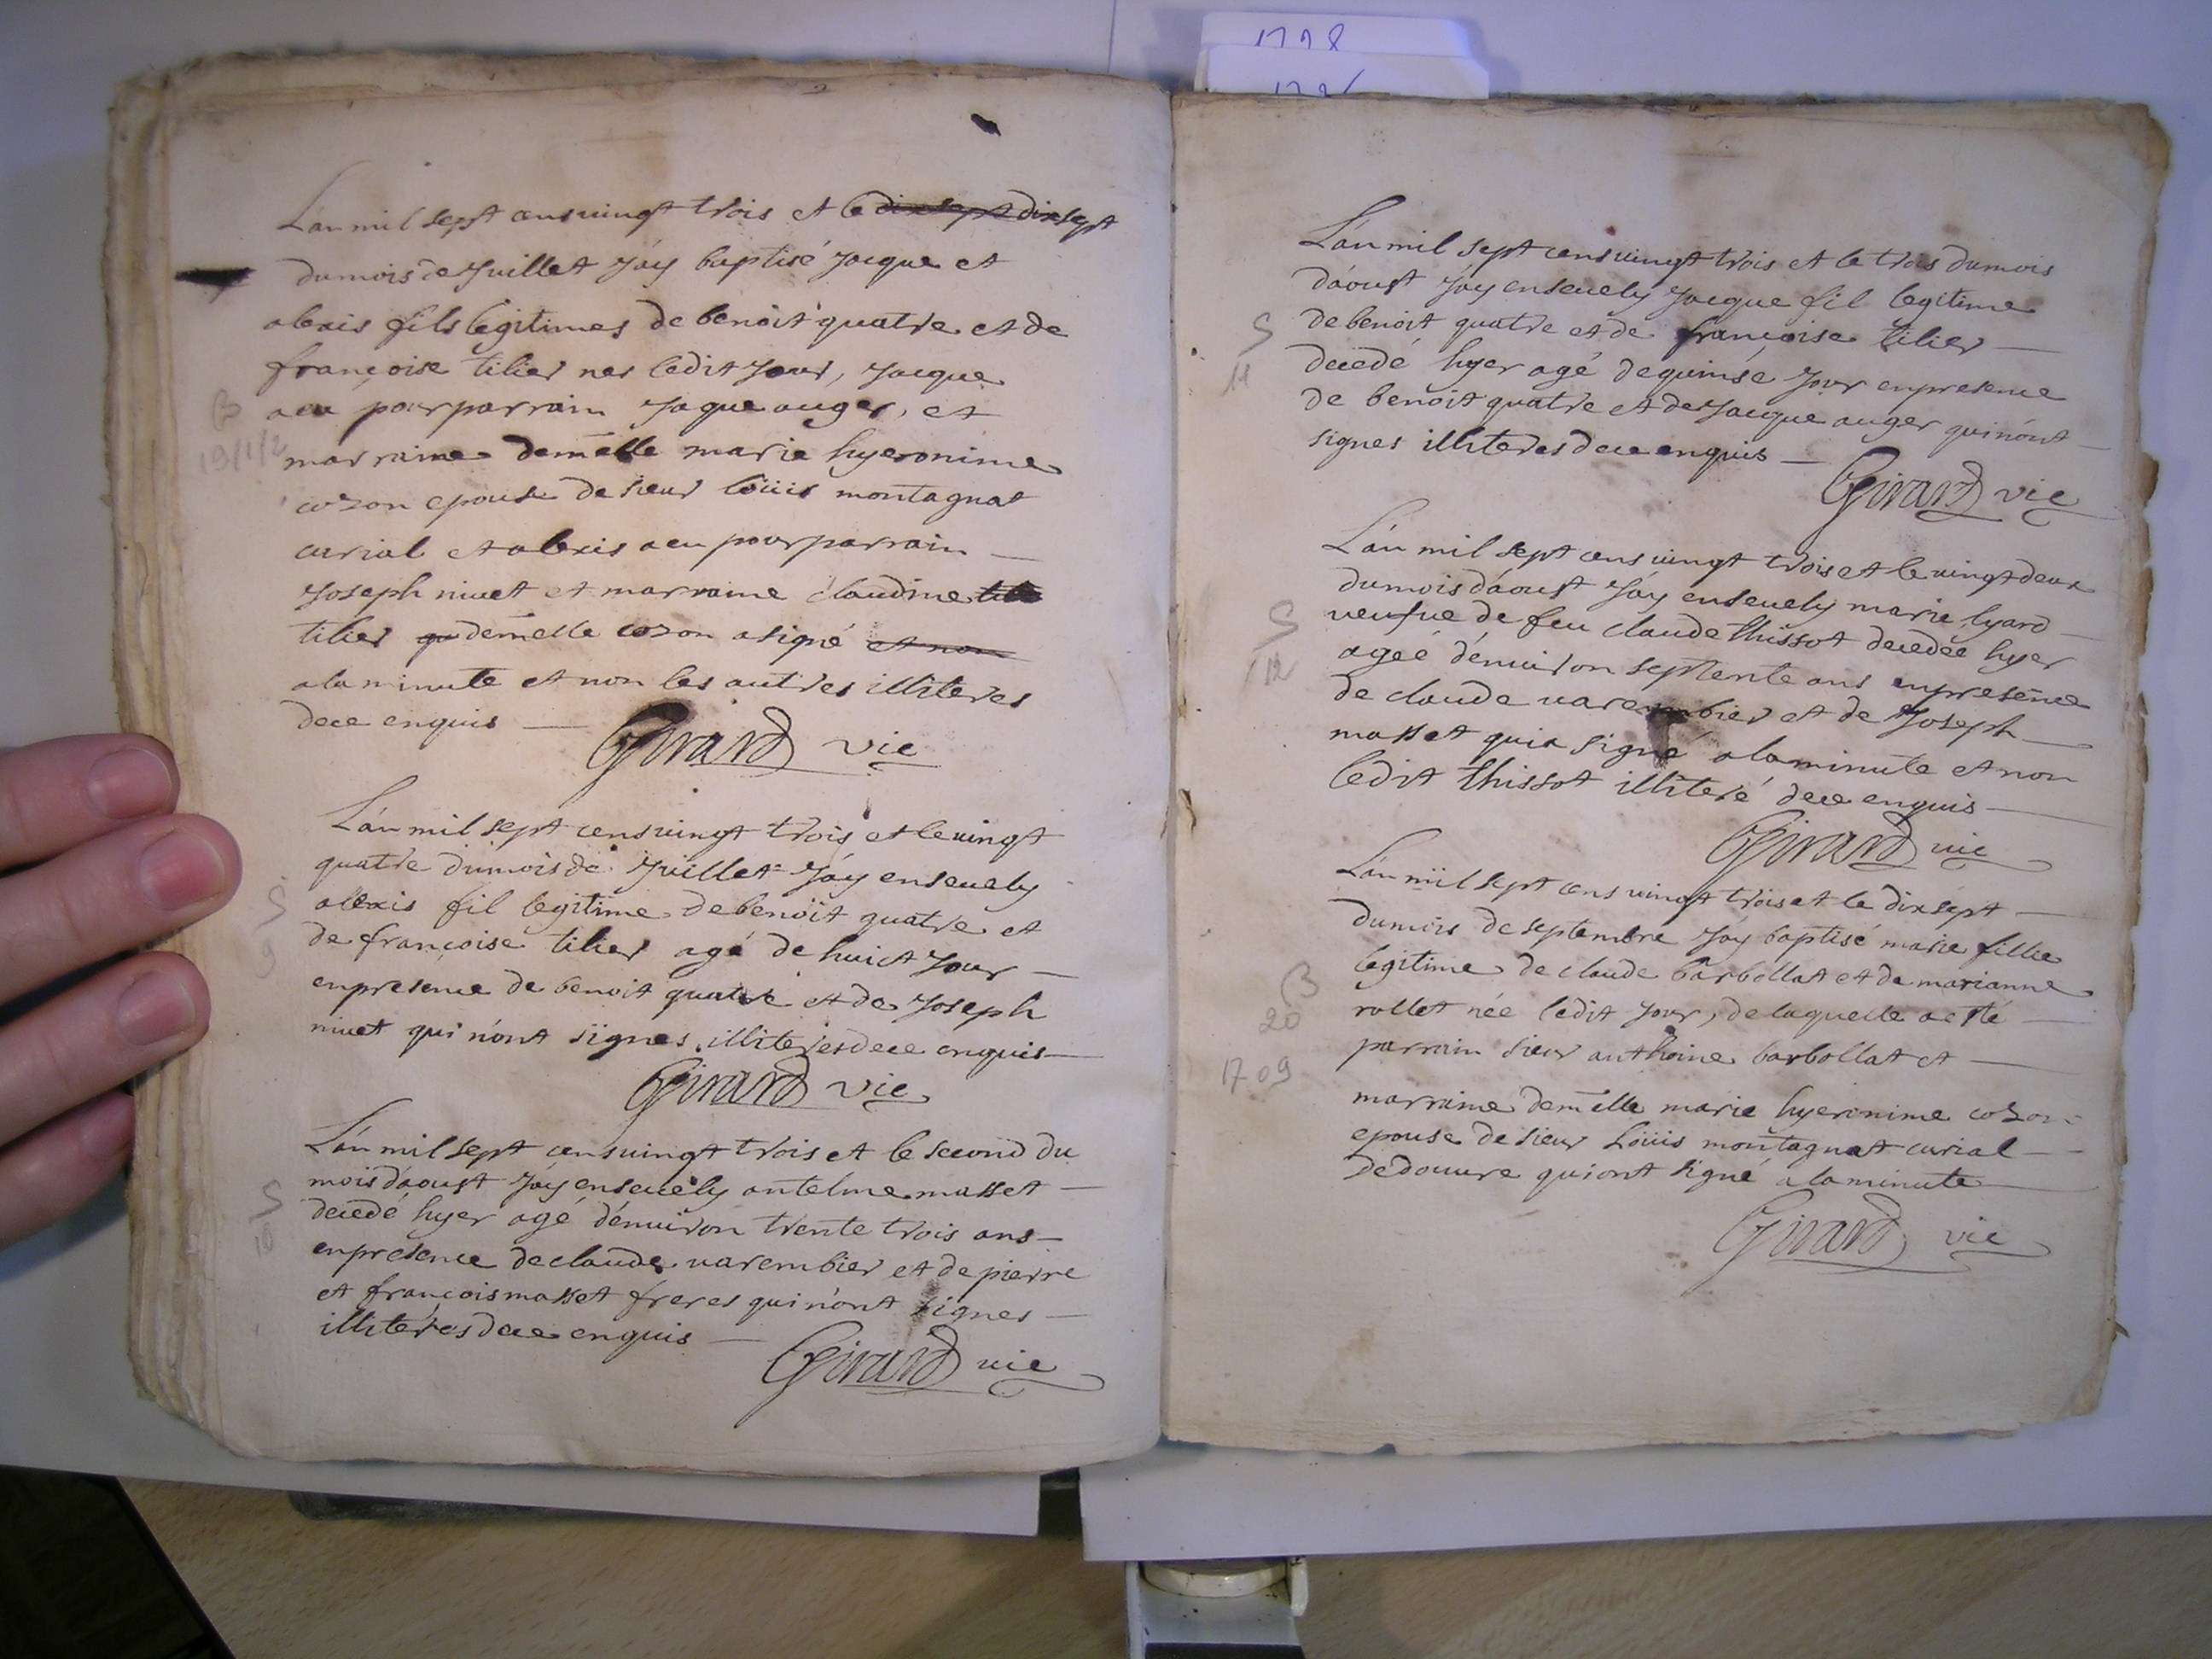 1728
L'an mil sept cens vingt trois et le dixsept dixsept
du mois de Juillet J'ay baptisé Jacque et
alexis fils legitimes de benoit quatre et de
françoise tilier nes ledit Jour, Jacque
B
19/1/2
a eu pour parrain Jaque auger, et
marraine demelle marie hyeronime
cozon epouse de sieur loüis montagnat
curial et alexis a eu pour parrain
Joseph nivet et marraine claudine
tilier demelle cozon a signé et non
a la minute et non les autres illiteres
de ce enquis
Girard vic
L'an mil sept cens vingt trois et le vingt
quatre du mois de Juillet J'ay ensevely
S
9
allexis fil legitime de benoit quatre et
de françoise tilier agé de huict Jour
en presence de benoit quatre et de Joseph
nivet qui n'ont signes illiteres de ce enquis
Girard vic
L'an mil sept cens vingt trois et le second du
S
10
mois d'aoust J'ay ensevely antelme masset
decedé hyer agé d'environ trente trois ans
en presence de claude varembier et de pierre
et françois masset freres qui n'ont signes
illiteres de ce enquis
Girard vic
L'an mil sept cens vingt trois et le trois du mois
d'aoust J'ay ensevely Jacque fil legitime
S
11
de benoit quatre et de françoise tilier
decedé hyer agé de quinse Jour en presence
de benoit quatre et de Jacque auger qui n'ont
signes illiteres de ce enquis
Girard vic
L'an mil sept cens vingt trois et le vingt deux
du mois d'aoust J'ay ensevely marie lyard
S
12
veufve de feu claude thissot decedée hyer
agée d'environ septente ans en presence
de claude varembier et de Joseph
masset qui a signé a la minute et non
ledit thissot illiteré de ce enquis
Girard vic
L'an mil sept cens vingt trois et le dix sept
du mois de septembre J'ay baptisé marie fillie
B
20
legitime de claude barbollat et de marianne
rollet née ledit Jour, de laquelle a esté
1709
parrain sieur anthoine barbollat et
marraine demelle marie hyeronime cozon
epouse de sieur Loüis montagnat curial
de douvre qui ont signé a la minute
Girard vic